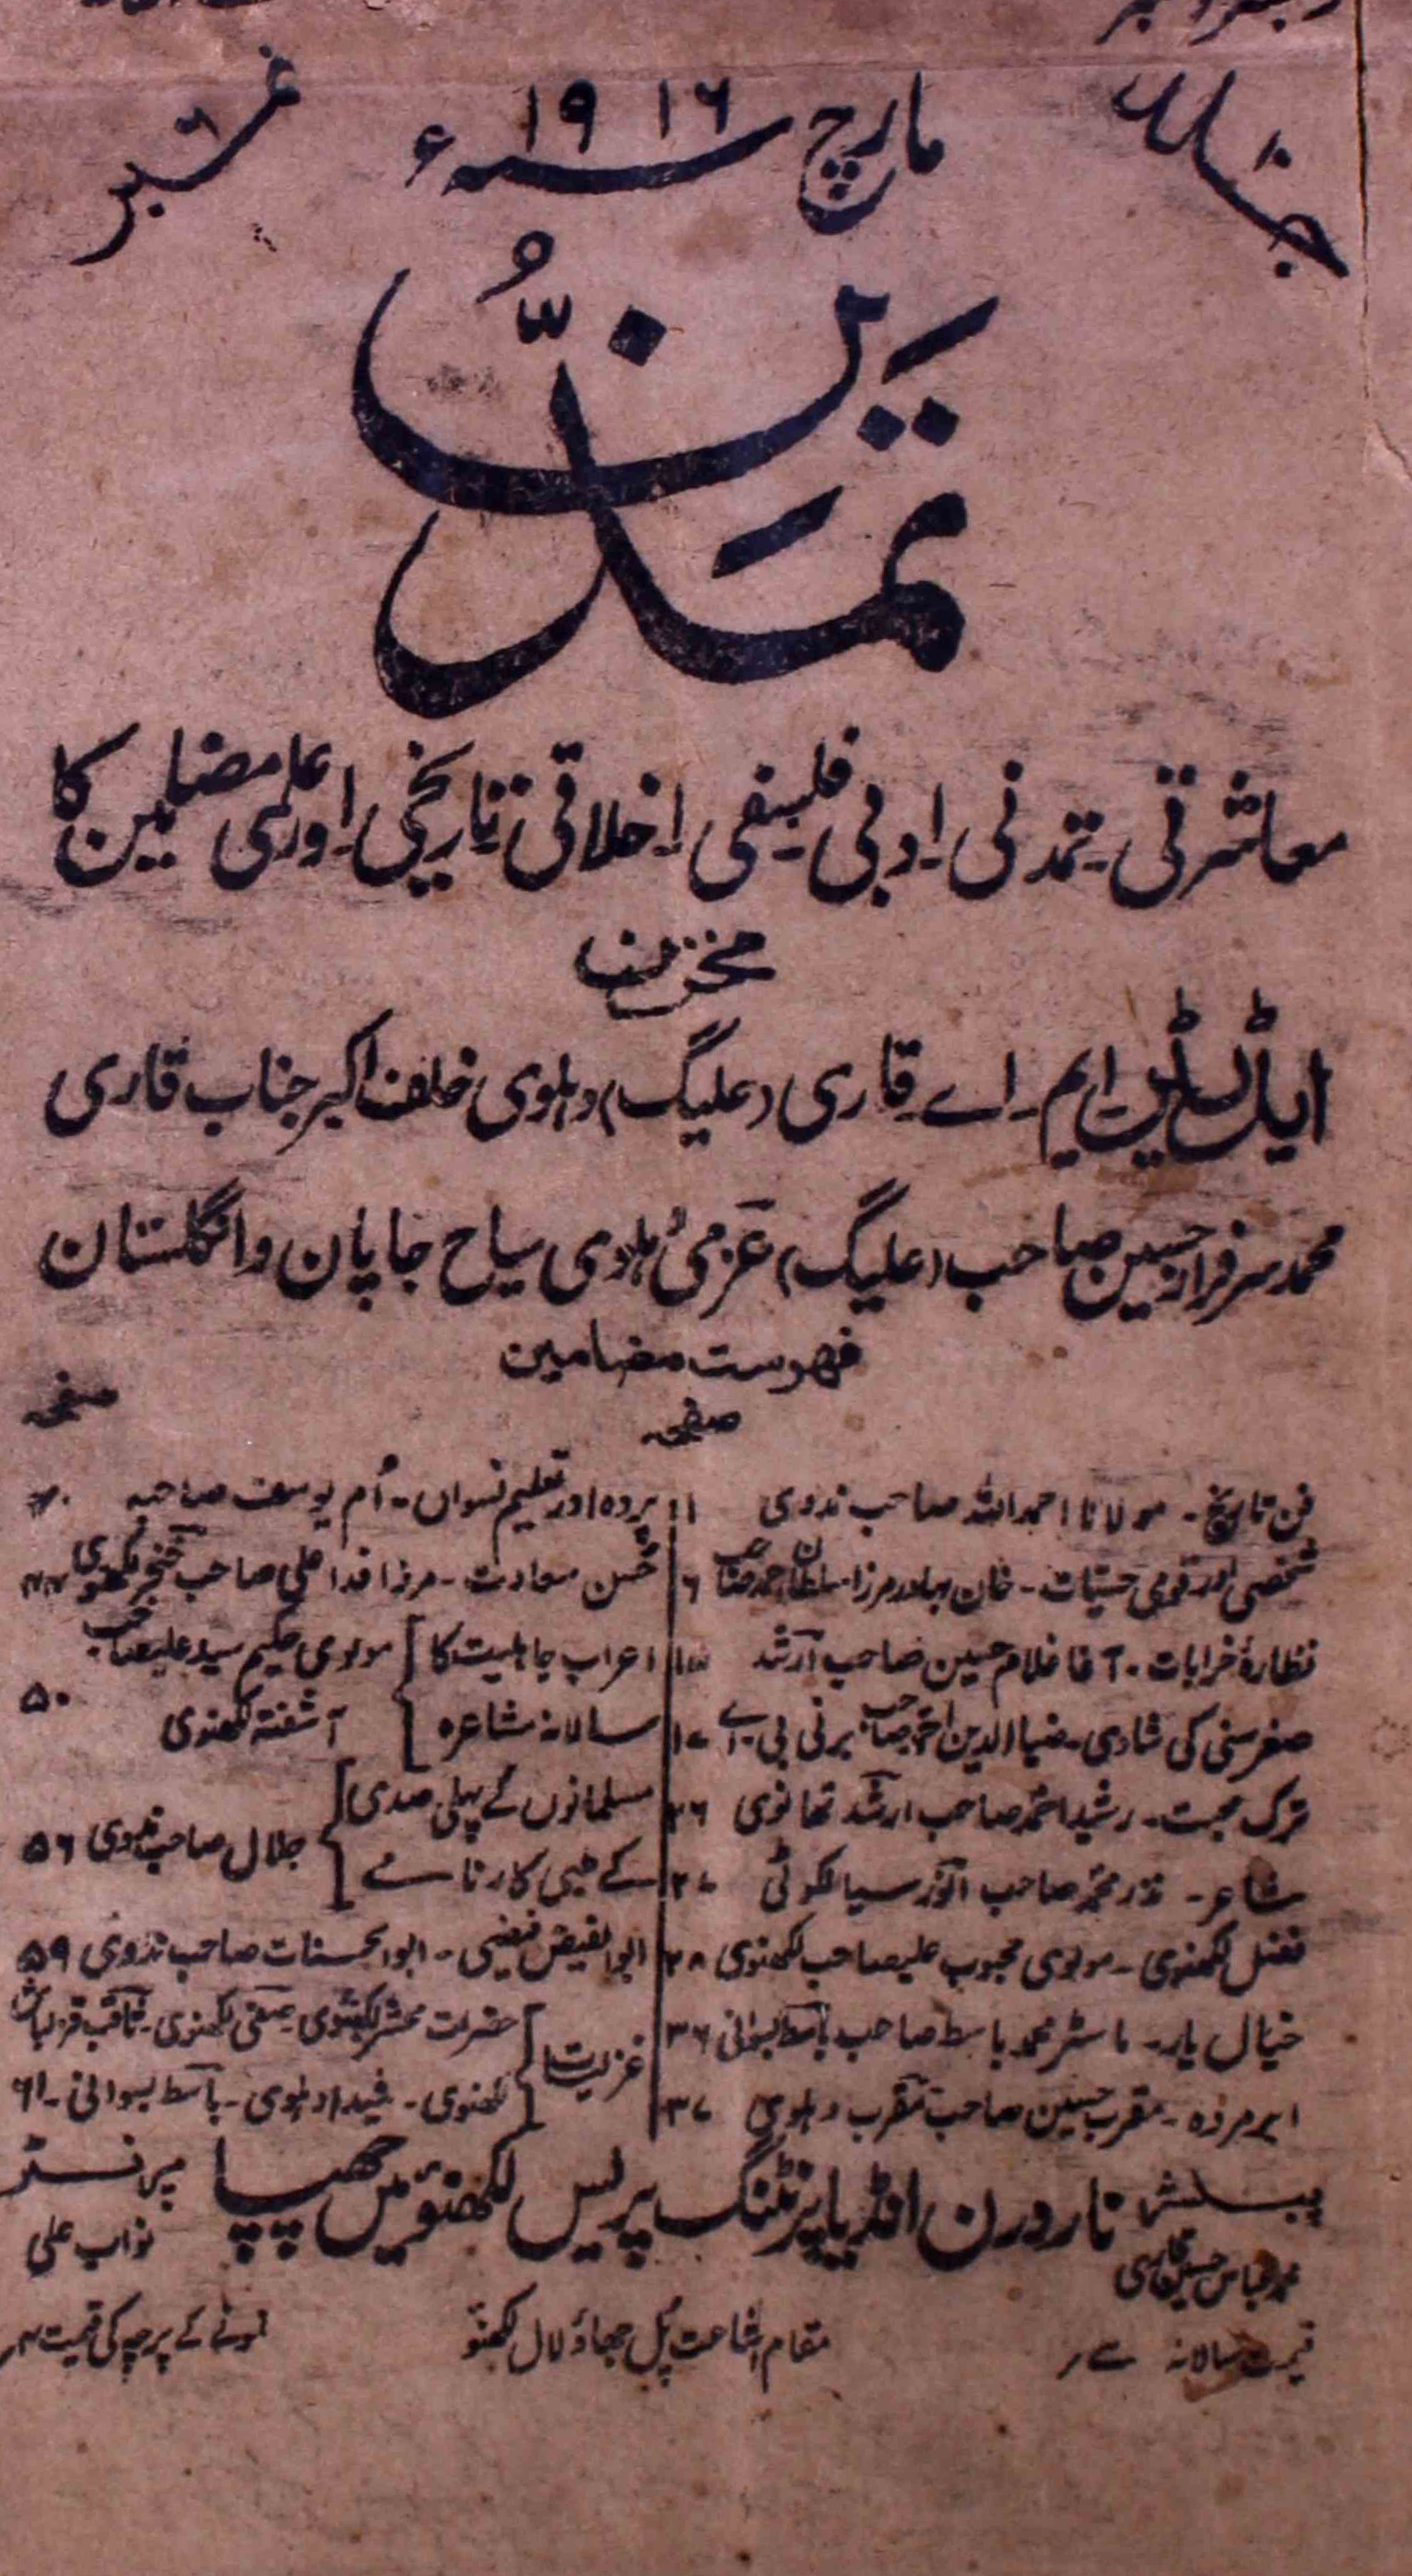 جلد ۱۰
مارچ سنہ ۱۹۱۶ء
نمبر
تمدّن
معاشرتی۔ تمدنی۔ ادبی۔ فلسفی۔ اخلاقی۔ تاریخی۔ اور علمی مضامین کا
مخزن
ایڈیٹر ایم۔ اے۔ قاری (علیگ) دہلوی خلف اکبر جناب قاری
محمد سرفراز حسین صاحب (علیگ) عزمی دہلوی سیاح جاپان و انگلستان
فہرست مضامین
صفحہ
صفحہ
فن تاریخ۔ مولانا احمد اللہ صاحب ندوی ۱
شخصی اور قومی حسیّات۔ خان بہادر مرزا سلطان احمد صاحب ۶
نظارۂ خرابات۔ آغا غلام حسین صاحب ارشد
صغر سنی کی شادی۔ ضیا الدین احمد صاحب برنی بی۔ اے
ترک محبت۔ رشید احمد صاحب ارشد تھانوی ۲۶
شاعر۔ نذر محمد صاحب انور سیالکوٹی ۲۷
فضل لکھنوی۔ مولوی محبوب علیصاحب لکھنوی ۲۸
خیال یار۔ ماسٹر محمد باسط صاحب باسط بسوانی ۳۶
ابر مردہ۔ مقرب حسین صاحب مقرب دہلوی ۳۷
پردہ اور تعلیم نسواں۔ اُم یوسف صاحبہ
حُسن معادت۔ مرزا فدا علی صاحب خنجر لکھنوی ۴۴
اعراب جاہلیت کا سالانہ مشاعرہ } مولوی حکیم سید علیصاحب آشفتہ لکھنوی ۵۰
مسلمانوں کے پہلی صدی کے طبی کارنامے } جلال صاحب ندوی ۵۶
ابوالفیض فیضی۔ ابوالحسنات صاحب ندوی ۵۹
غزلیات } حضرات محشر لکھنوی۔ صفی لکھنوی۔ ثاقب قزلباش لکھنوی۔ شیدا دہلوی۔ باسط بسوانی۔ ۶۱
پبلشر
محمد عباس حسین قاری
ناردرن انڈیا پرنٹنگ پریس لکھنؤ میں چھپا
پرنٹر
نواب علی
قیمت سالانہ
مقام اشاعت پُل جھاؤ لال لکھنؤ
نمونے کے پرچہ کی قیمت ۴ر